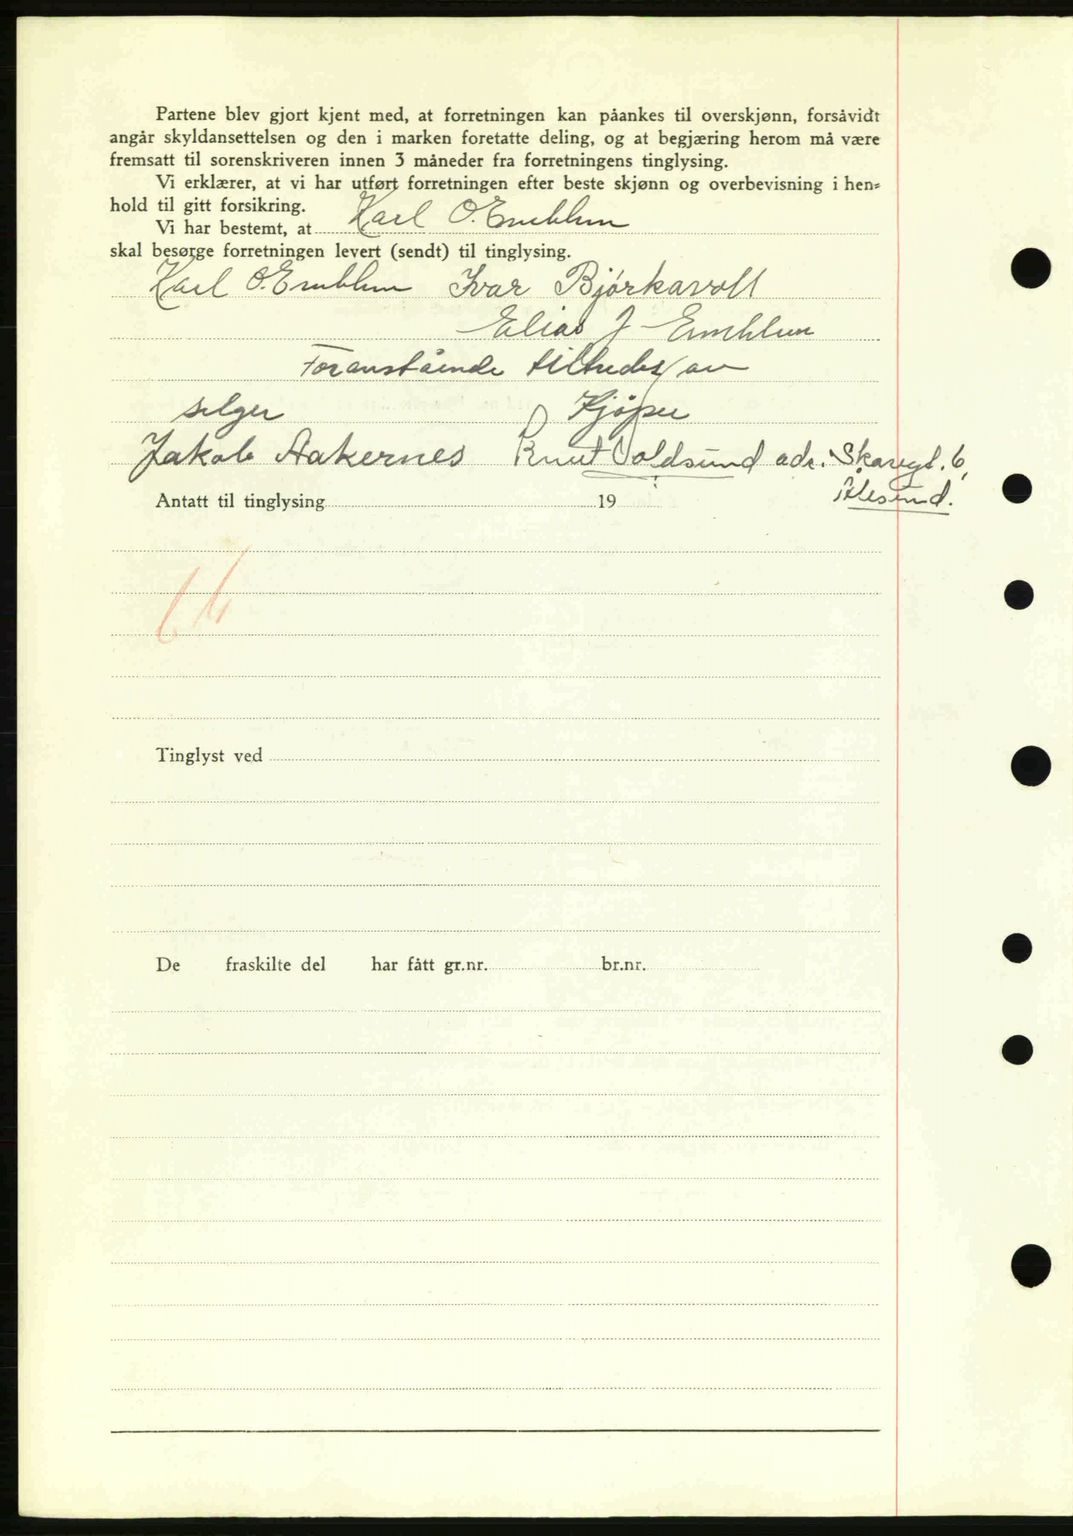 Partene blev gjort kjent med, at forretningen kan påankes til overskjønn, forsåvidt
angår skyldansettelsen og den i marken foretatte deling, og at begjæring herom må være
fremsatt til sorenskriveren innen 3 måneder fra forretningens tinglysing.
Vi erklærer, at vi har utført forretningen efter beste skjønn og overbevisning i hen=
hold til gitt forsikring.
Vi har bestemt, at Karl O. Emblem
skal besørge forretningen levert (sendt) til tinglysing.
Karl O. Emblem Ivar Bjørkavoll
Elias J Emblem
Foranstående tiltredes av
selger Kjøper
Jakob Aakernes Knut Voldsund adr. Skaregt. 6,
Ålesund.
Antatt til tinglysing 19
Tinglyst ved
De fraskilte del har fått gr.nr. br.nr.